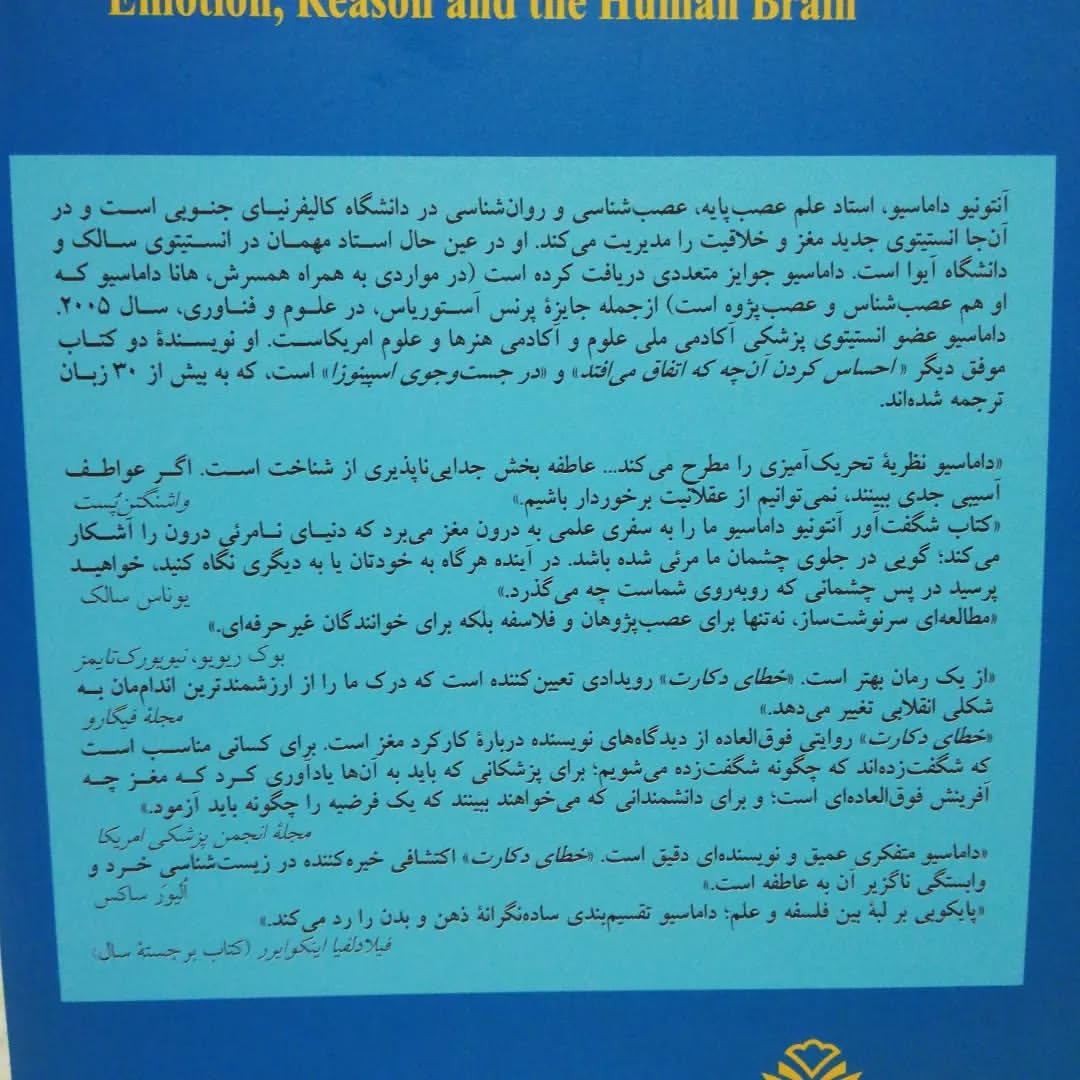 Emotion, Reason and the Human Brain
آنتونیو داماسیو، استاد علم عصب‌پایه، عصب‌شناسی و روان‌شناسی در دانشگاه کالیفرنیای جنوبی است و در
آن‌جا انستیتوی جدید مغز و خلاقیت را مدیریت می‌کند. او در عین حال استاد مهمان در انستیتوی سالک و
دانشگاه آیوا است. داماسیو جوایز متعددی دریافت کرده است (در مواردی به همراه همسرش، هانا داماسیو که
او هم عصب‌شناس و عصب‌پژوه است) ازجمله جایزهٔ پرنس آستوریاس، در علوم و فناوری، سال ۲۰۰۵.
داماسیو عضو انستیتوی پزشکی آکادمی ملی علوم و آکادمی هنرها و علوم امریکاست. او نویسندهٔ دو کتاب
موفق دیگر «احساس کردن آن‌چه که اتفاق می‌افتد» و «در جست‌وجوی اسپینوزا» است، که به بیش از ۳۰ زبان
ترجمه شده‌اند.
«داماسیو نظریهٔ تحریک‌آمیزی را مطرح می‌کند... عاطفه بخش جدایی‌ناپذیری از شناخت است. اگر عواطف
آسیبی جدی ببینند، نمی‌توانیم از عقلانیت برخوردار باشیم.» واشنگتن‌پُست
«کتاب شگفت‌آور آنتونیو داماسیو ما را به سفری علمی به درون مغز می‌برد که دنیای نامرئی درون را آشکار
می‌کند؛ گویی در جلوی چشمان ما مرئی شده باشد. در آینده هرگاه به خودتان یا به دیگری نگاه کنید، خواهید
پرسید در پس چشمانی که روبه‌روی شماست چه می‌گذرد.» یوناس سالک
«مطالعه‌ای سرنوشت‌ساز، نه‌تنها برای عصب‌پژوهان و فلاسفه بلکه برای خوانندگان غیرحرفه‌ای.»
بوک ریویو، نیویورک‌تایمز
«از یک رمان بهتر است. «خطای دکارت» رویدادی تعیین‌کننده است که درک ما را از ارزشمندترین اندام‌مان به
شکلی انقلابی تغییر می‌دهد.» مجلهٔ فیگارو
«خطای دکارت» روایتی فوق‌العاده از دیدگاه‌های نویسنده دربارهٔ کارکرد مغز است. برای کسانی مناسب است
که شگفت‌زده‌اند که چگونه شگفت‌زده می‌شویم؛ برای پزشکانی که باید به آن‌ها یادآوری کرد که مغز چه
آفرینش فوق‌العاده‌ای است؛ و برای دانشمندانی که می‌خواهند ببینند که یک فرضیه را چگونه باید آزمود.»
مجلهٔ انجمن پزشکی امریکا
«داماسیو متفکری عمیق و نویسنده‌ای دقیق است. «خطای دکارت» اکتشافی خیره‌کننده در زیست‌شناسی خرد و
وابستگی ناگزیر آن به عاطفه است.» اُلیوَر ساکس
«پایکوبی بر لبهٔ بین فلسفه و علم؛ داماسیو تقسیم‌بندی ساده‌نگرانهٔ ذهن و بدن را رد می‌کند.»
فیلادلفیا اینکوایرر (کتاب برجستهٔ سال)